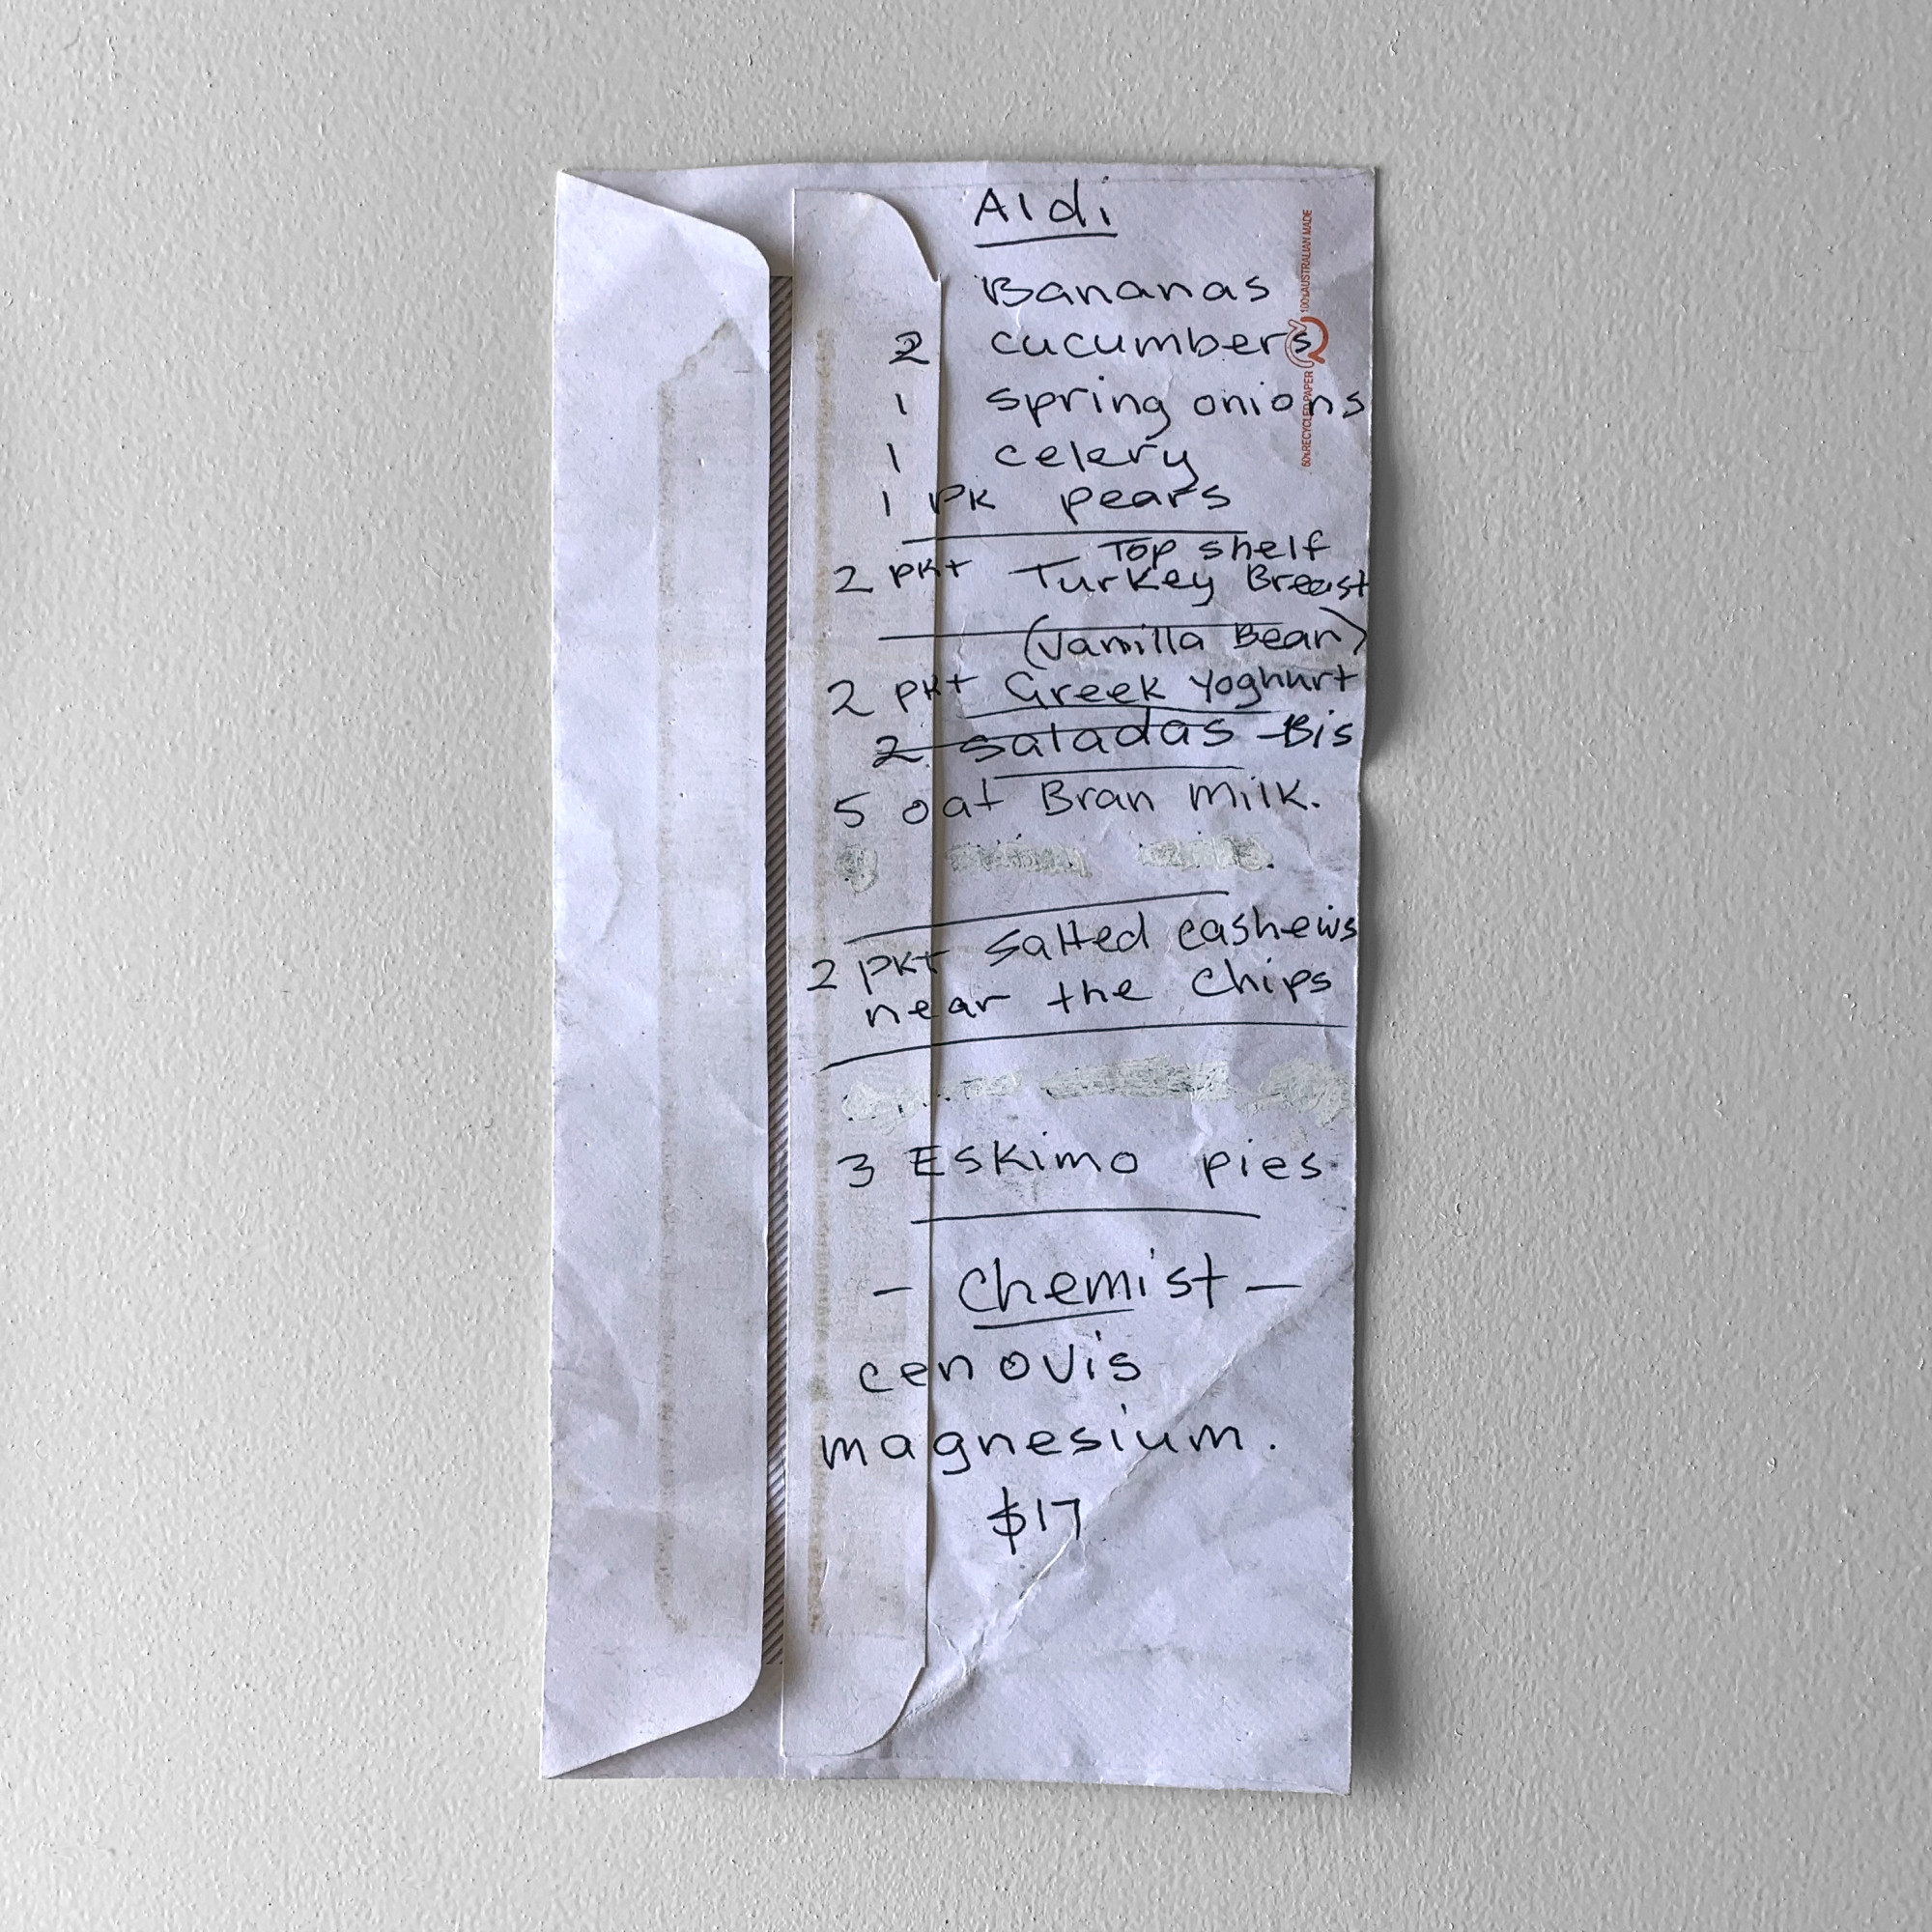 Aldi
Bananas
2 cucumbers
1 spring onions
1 celery
1 PK pears
Top shelf
2 pkt Turkey Breast
(Vanilla Bean)
2 pkt Greek Yoghurt
2 Saladas Bis
5 oat Bran Milk.
2 pkt salted cashews
near the chips
3 Eskimo pies
- Chemist -
cenovis
magnesium.
$17
60% RECYCLED PAPER 100% AUSTRALIAN MADE